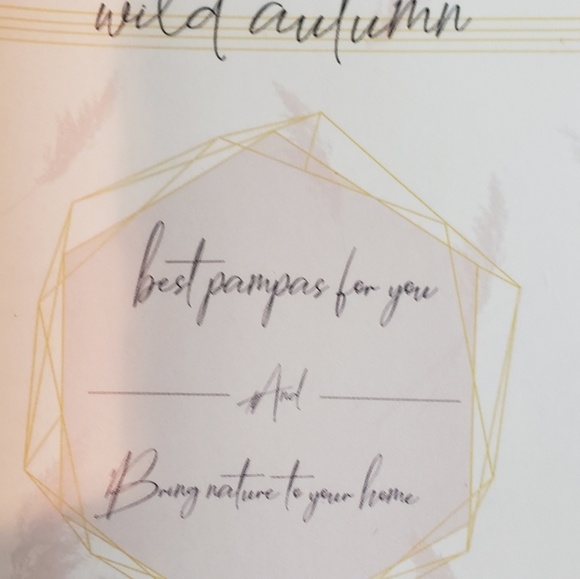 wild autumn
best pampas for you
And
Bring nature to your home